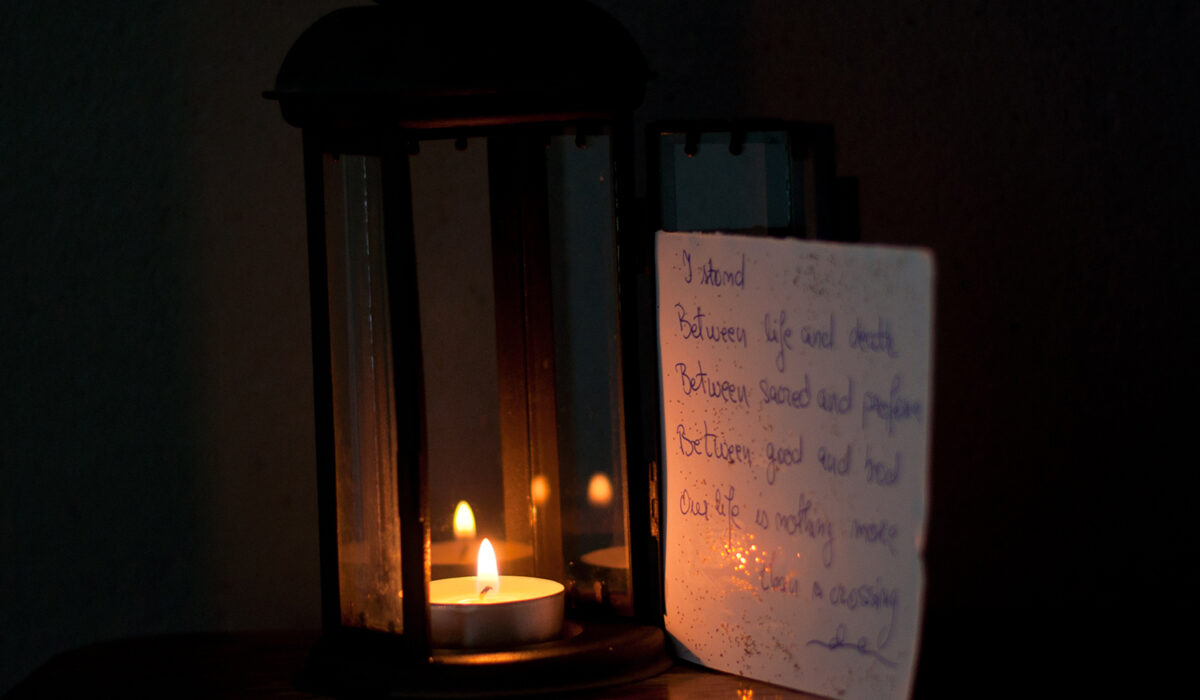 I stand
Between life and death
Between sacred and profane
Between good and bad
Our life is nothing more
than a crossing